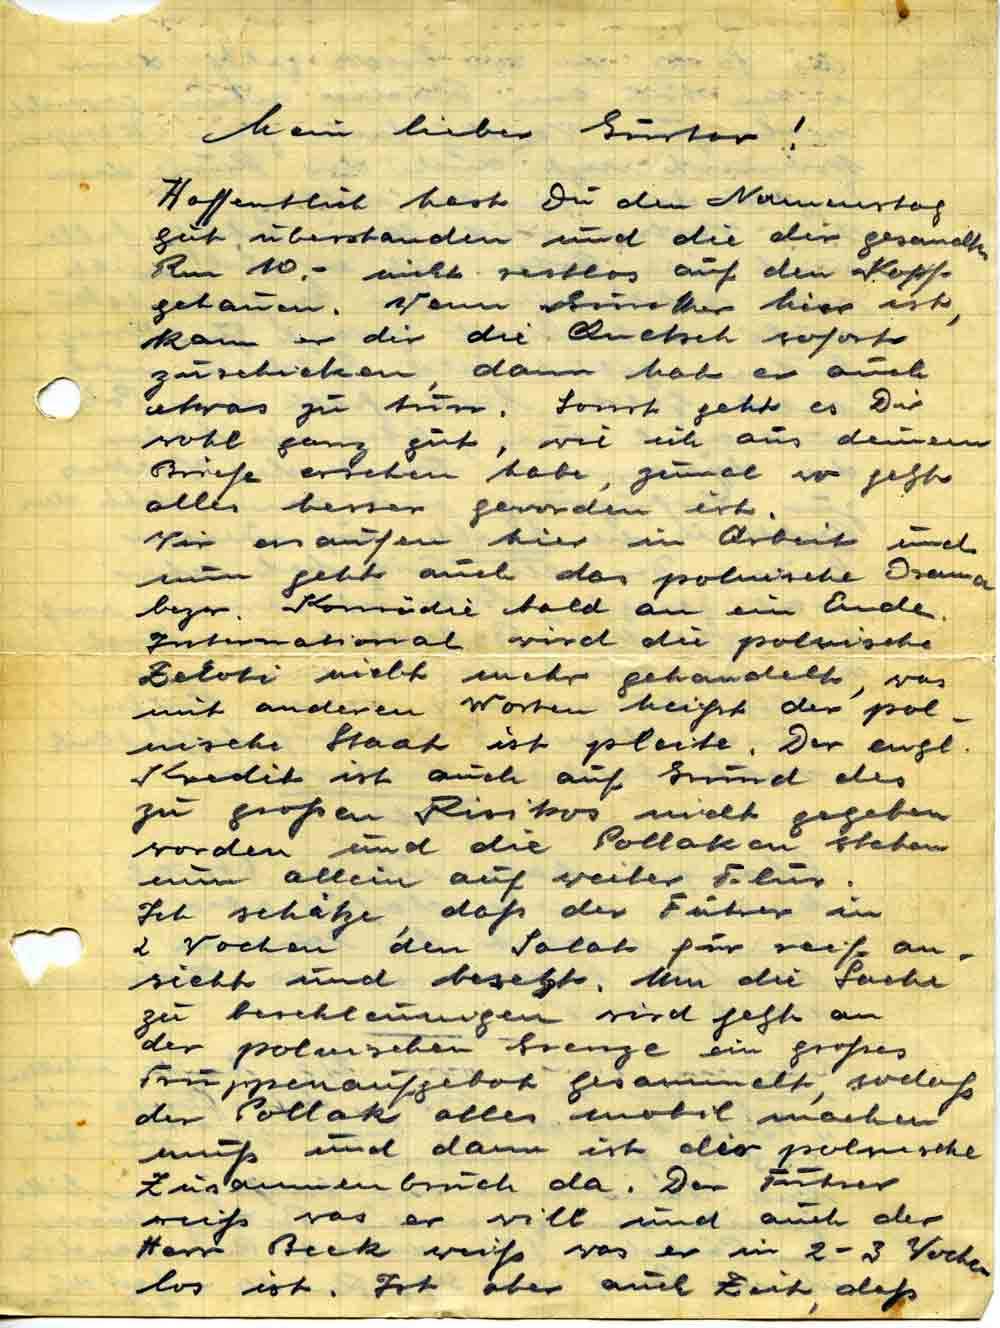 Mein lieber Gustav!
Hoffentlich hast Du den Namenstag
gut überstanden und die dir gesandten
Rm 10.- nicht restlos auf den Kopf
gehauen. Wenn Günther hier ist,
kann er dir die Quetsch sofort
zuschicken, dann hat er auch
etwas zu tun. Sonst geht es Dir
wohl ganz gut, wie ich aus deinem
Briefe ersehen habe, zumal wo jetzt
alles besser geworden ist.
Wir ersaufen hier in Arbeit und
nun geht auch das polnische Drama
bezw. Komödie bald an ein Ende.
International wird die polnische
Zeloti nicht mehr gehandelt, was
mit anderen Worten heißt der pol-
nische Staat ist pleite. Der engl.
Kredit ist auch auf Grund des
zu großen Risikos nicht gegeben
worden und die Pollaken stehen
nun allein auf weiter Flur.
Ich schätze, daß der Führer in
2 Wochen den Salat für reif an-
sieht und besetzt. Um die Sache
zu beschleunigen wird jetzt an
der polnischen Grenze ein großes
Truppenaufgebot gesammelt, sodaß
der Pollak alles mobil machen
muß und dann ist der polnische
Zusammenbruch da. Der Führer
weiß was er will und auch der
Herr Beck weiß was er in 2-3 Wochen
los ist. Ist aber auch Zeit, daß